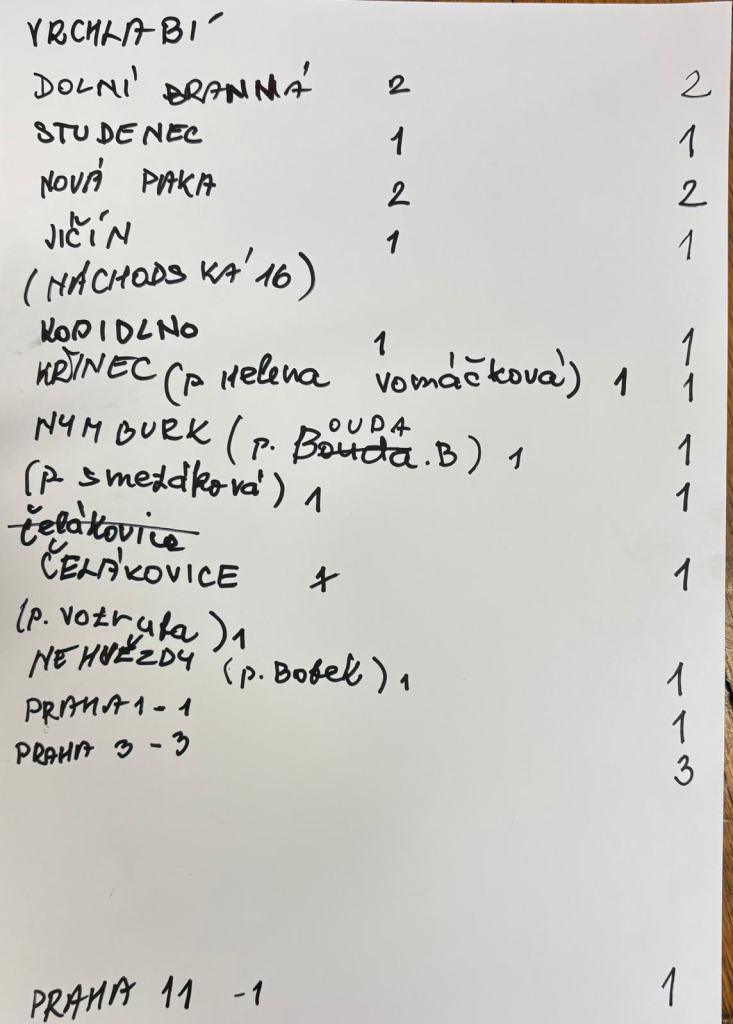 VRCHLABÍ
DOLNÍ BRANNÁ 2 2
STUDENEC 1 1
NOVÁ PAKA 2 2
JIČÍN 1 1
(NÁCHODSKÁ 16)
KOPIDLNO 1 1
KŘINEC (p Helena Vomáčková) 1 1
OUDA
NYMBURK (p. Bouda.B) 1 1
(p smetáková) 1 1
Čelákovice
ČELÁKOVICE 1 1
(p. Votruba) 1
NEHVĚZDY (p. Bobek) 1 1
PRAHA 1 - 1 1
PRAHA 3 - 3 3
PRAHA 11 - 1 1